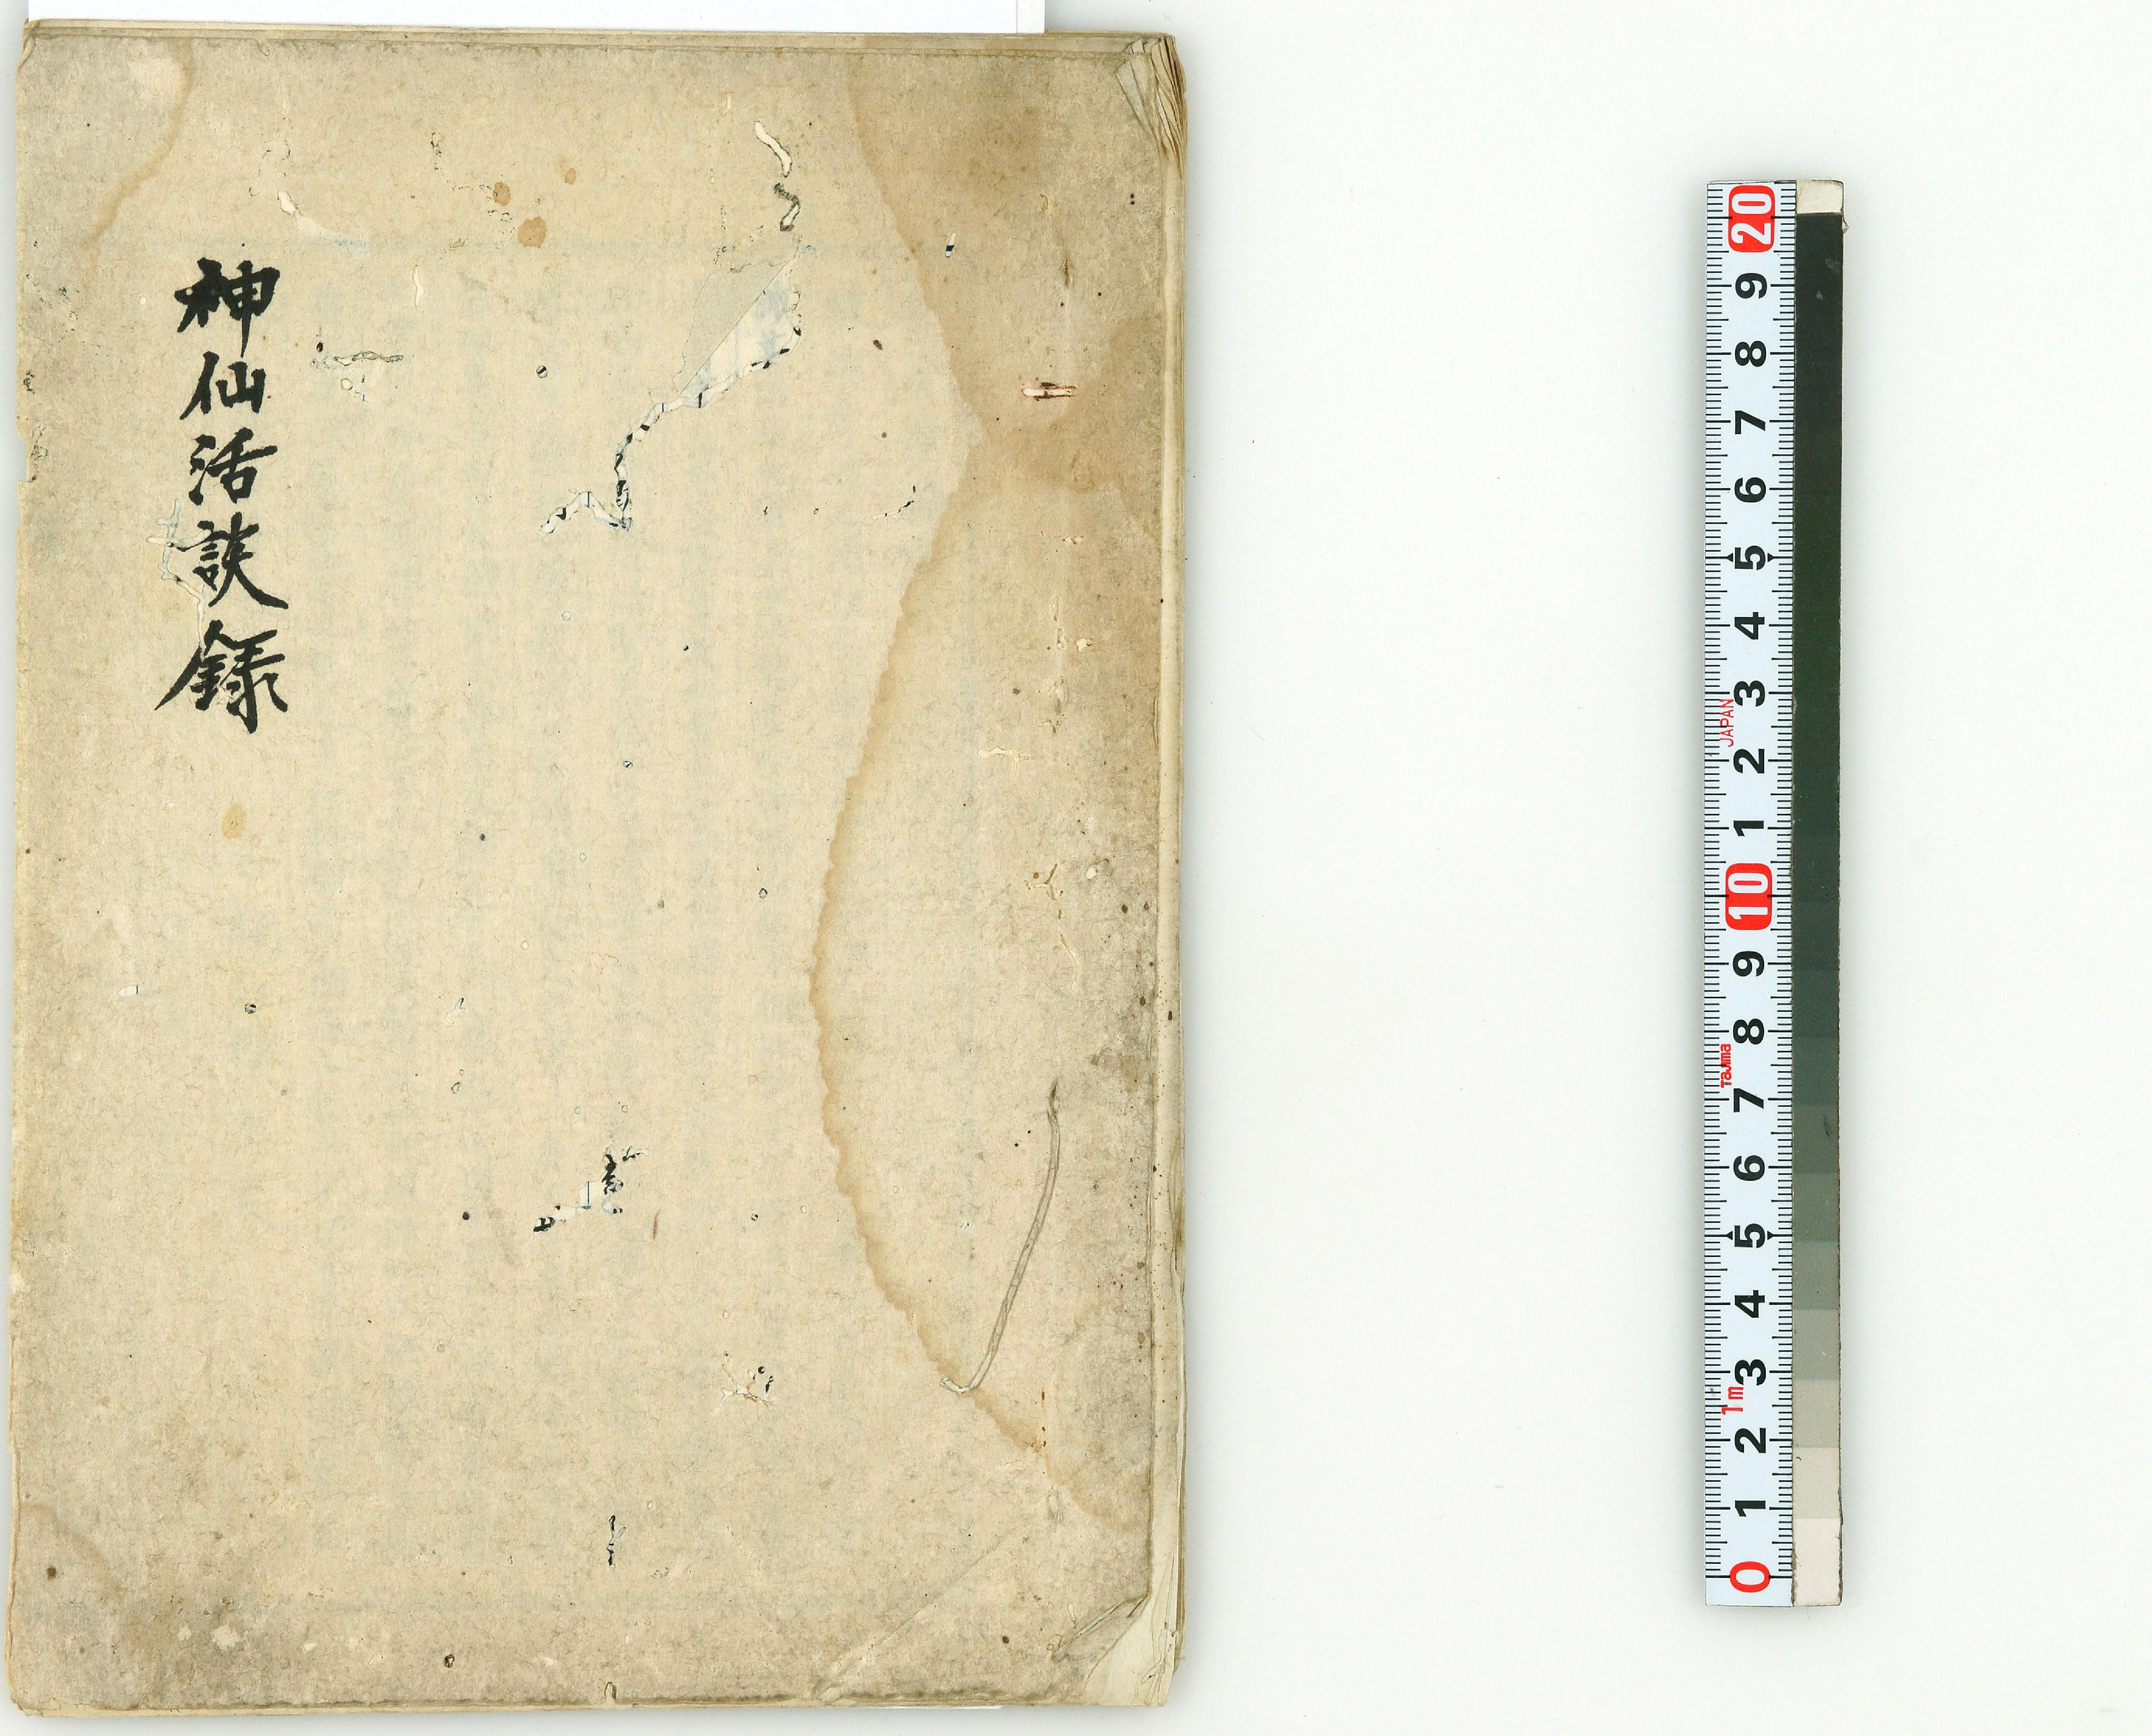 神仙活談録
20
9
8
7
6
5
4
3
JAPAN
2
1
10
9
8
Tajima
7
6
5
4
3
1m
2
1
0